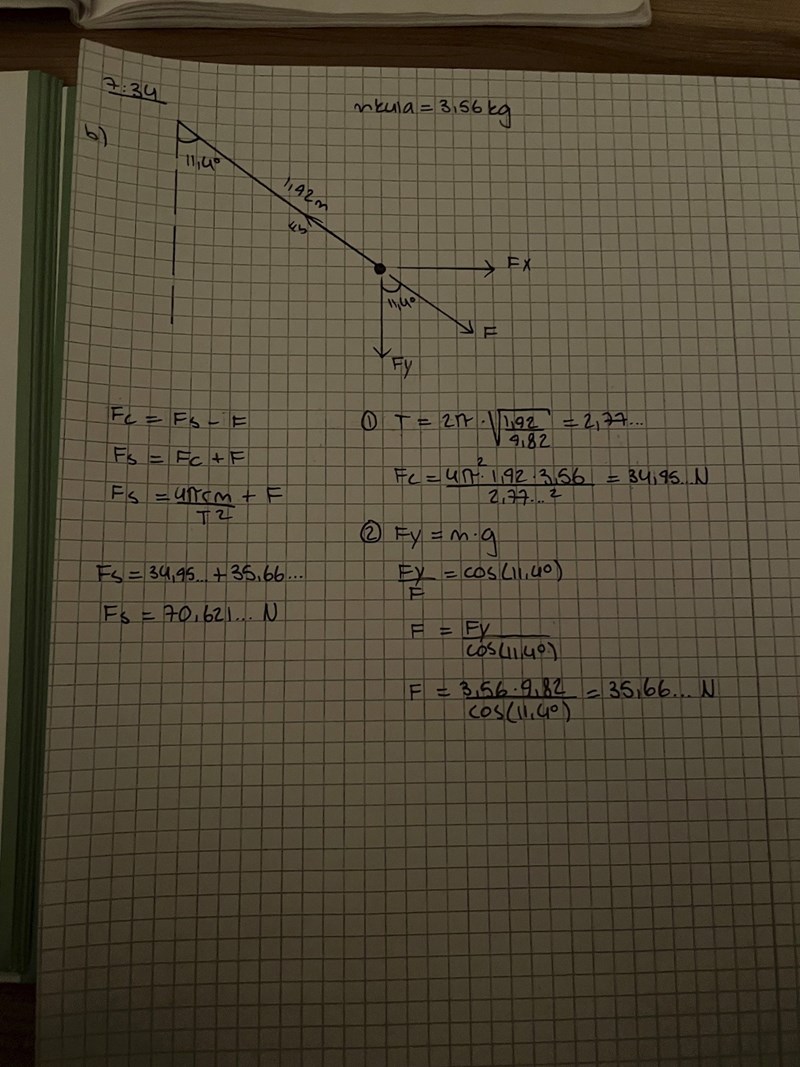 7:34
mkula = 3,56 kg
b)
11,4°
1,92 m
Fs
Fx
11,4°
F
Fy
Fc = Fs - F
Fs = Fc + F
Fs = 4π²rm/T² + F
Fs = 34,95... + 35,66...
Fs = 70,621... N
① T = 2π · √(1,92/9,82) = 2,77...
Fc = 4π² · 1,92 · 3,56 / 2,77...² = 34,95... N
② Fy = m · g
Fy/F = cos(11,4°)
F = Fy/cos(11,4°)
F = 3,56 · 9,82 / cos(11,4°) = 35,66... N